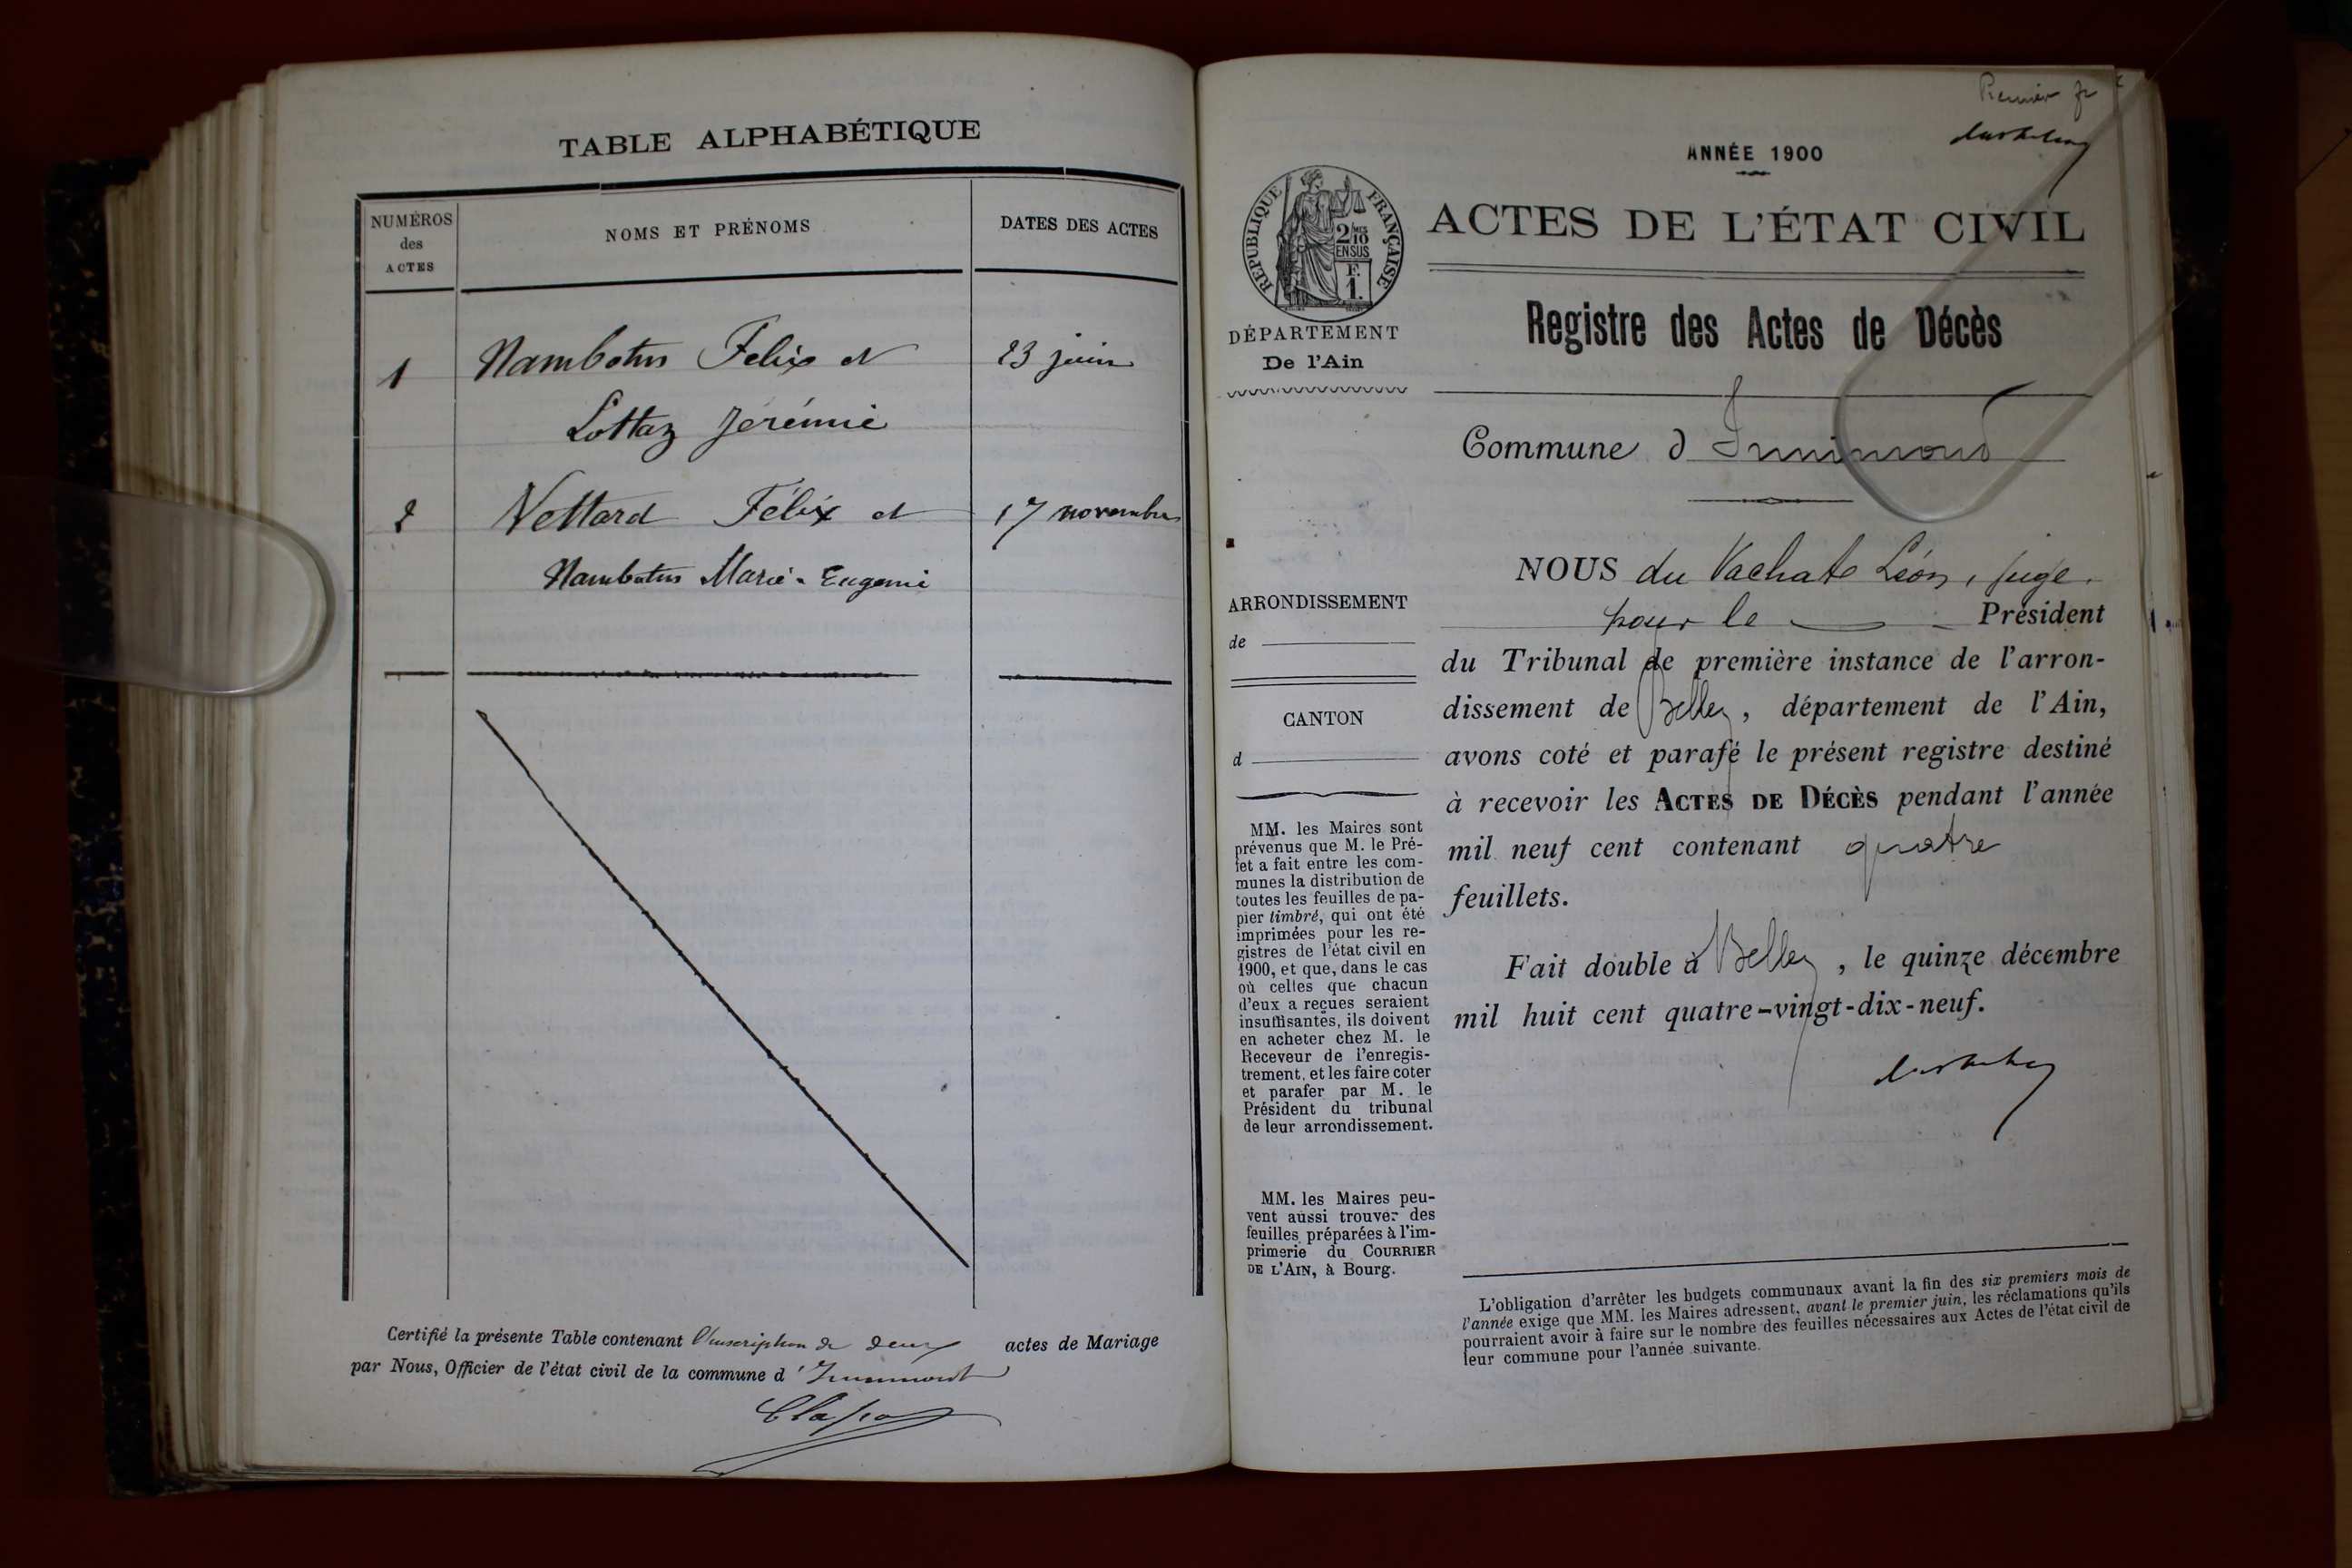 TABLE ALPHABÉTIQUE
NUMÉROS des ACTES
NOMS ET PRÉNOMS
DATES DES ACTES
1 Nambotin Felix et 23 juin
Lottaz Jérémie
2 Vettard Félix et 17 novembre
Nambotin Marie-Eugenie
Certifié la présente Table contenant l'inscription de deux actes de Mariage
par Nous, Officier de l'état civil de la commune d'Innimont
Premier
ANNÉE 1900
RÉPUBLIQUE FRANÇAISE
2/10
EN SUS
F.
1.
ACTES DE L'ÉTAT CIVIL
DÉPARTEMENT
De l'Ain
Registre des Actes de Décès
Commune d Innimond
ARRONDISSEMENT
de
CANTON
d
MM. les Maires sont
prévenus que M. le Pré-
fet a fait entre les com-
munes la distribution de
toutes les feuilles de pa-
pier timbré, qui ont été
imprimées pour les re-
gistres de l'état civil en
1900, et que, dans le cas
où celles que chacun
d'eux a reçues seraient
insuffisantes, ils doivent
en acheter chez M. le
Receveur de l'enregis-
trement, et les faire coter
et parafer par M. le
Président du tribunal
de leur arrondissement.
MM. les Maires peu-
vent aussi trouver des
feuilles préparées à l'im-
primerie du COURRIER
DE L'AIN, à Bourg.
NOUS du Vachat Léon, juge
pour le Président
du Tribunal de première instance de l'arron-
dissement de Belley, département de l'Ain,
avons coté et parafé le présent registre destiné
à recevoir les ACTES DE DÉCÈS pendant l'année
mil neuf cent contenant quatre
feuillets.
Fait double à Belley, le quinze décembre
mil huit cent quatre-vingt-dix-neuf.
L'obligation d'arrêter les budgets communaux avant la fin des six premiers mois de
l'année exige que MM. les Maires adressent, avant le premier juin, les réclamations qu'ils
pourraient avoir à faire sur le nombre des feuilles nécessaires aux Actes de l'état civil de
leur commune pour l'année suivante.